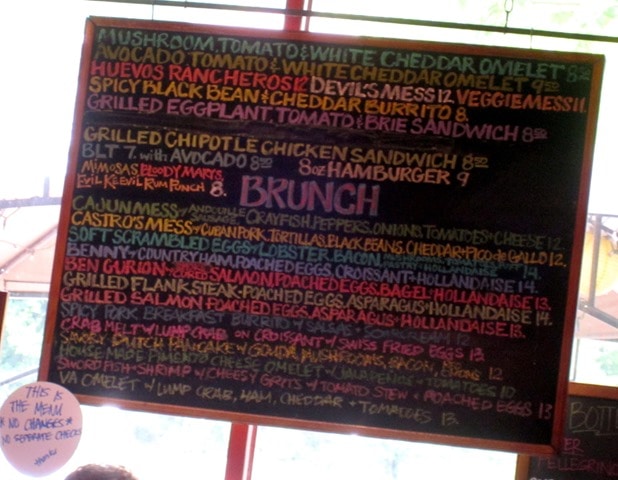 MUSHROOM, TOMATO & WHITE CHEDDAR OMELET 8.50
AVOCADO TOMATO & WHITE CHEDDAR OMELET 9.50
HUEVOS RANCHEROS 12 DEVIL'S MESS 12. VEGGIE MESS 11.
SPICY BLACK BEAN & CHEDDAR BURRITO 8.
GRILLED EGGPLANT, TOMATO & BRIE SANDWICH 8.50
GRILLED CHIPOTLE CHICKEN SANDWICH 8.50
BLT 7. with AVOCADO 8.50 8oz HAMBURGER 9
MIMOSAS, BLOODY MARYS,
EVIL KEEVIL RUM PUNCH 8.
BRUNCH
CAJUN MESS w/ ANDOUILLE SAUSAGE, CRAYFISH, PEPPERS, ONIONS, TOMATOES & CHEESE 12.
CASTRO'S MESS w/ CUBAN PORK, TORTILLAS, BLACK BEANS, CHEDDAR & PICO de GALLO 12.
SOFT SCRAMBLED EGGS w/ LOBSTER, BACON, HOLLANDAISE 14.
BENNY w/ COUNTRY HAM, POACHED EGGS, CROISSANT & HOLLANDAISE 14.
BEN GURION w/ CURED SALMON, POACHED EGGS, BAGEL & HOLLANDAISE 13.
GRILLED FLANK STEAK, POACHED EGGS, ASPARAGUS & HOLLANDAISE 14.
GRILLED SALMON, POACHED EGGS, ASPARAGUS & HOLLANDAISE 13.
SPICY PORK BREAKFAST BURRITO w/ SALSA & SOUR CREAM 12
CRAB MELT w/ LUMP CRAB ON CROISSANT w/ SWISS FRIED EGGS 13
SAVORY DUTCH PANCAKE w/ GOUDA, MUSHROOMS, BACON, 12
HOUSE MADE PIMENTO CHEESE OMELET w/ JALAPENOS & TOMATOES 10
SWORD FISH & SHRIMP w/ CHEESY GRITS w/ TOMATO STEW & POACHED EGGS 13
VA OMELET w/ LUMP CRAB, HAM, CHEDDAR & TOMATOES 13.
THIS IS
THE MENU
* NO CHANGES *
NO SEPARATE CHECKS
PELLEGRINO